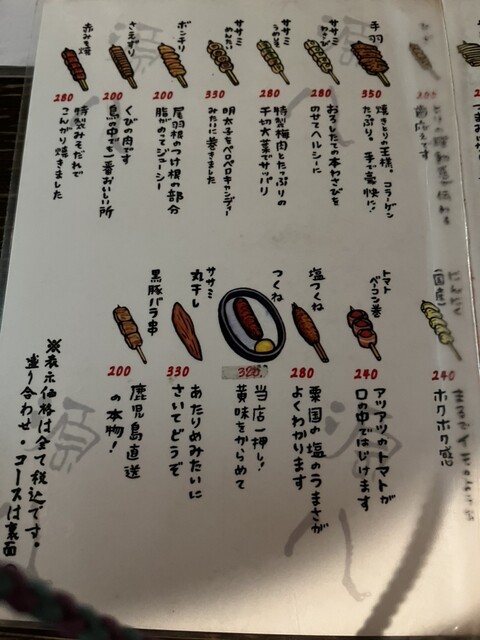 手羽
350
焼きとりの王様。コラーゲン
たっぷり。手で豪快に！
ササミ
わさび
280
おろしたての本わさびを
のせてヘルシーに
ササミ
うめしそ
280
特製梅肉とたっぷりの
千切大葉でサッパリ
ササミ
めんたい
330
明太子をペロペロキャンディー
みたいに巻きました
ボンチリ
200
尾羽根のつけ根の部分
脂がのってジューシー
さえずり
200
くびの肉です
鳥の中で一番おいしい所
赤みそ焼
280
特製みそだれで
こんがり焼きました
にんにく
(国産)
240
ホクホク感
トマト
ベーコン巻
240
アツアツのトマトが
口の中ではじけます
塩つくね
280
粟国の塩のうまさが
よくわかります
つくね
320
当店一押し！
黄味をからめて
ササミ
丸干し
330
あたりめみたいに
さいてどうぞ
黒豚バラ串
200
鹿児島直送
の本物！
※表示価格は全て税込です。
盛り合わせ・コースは裏面